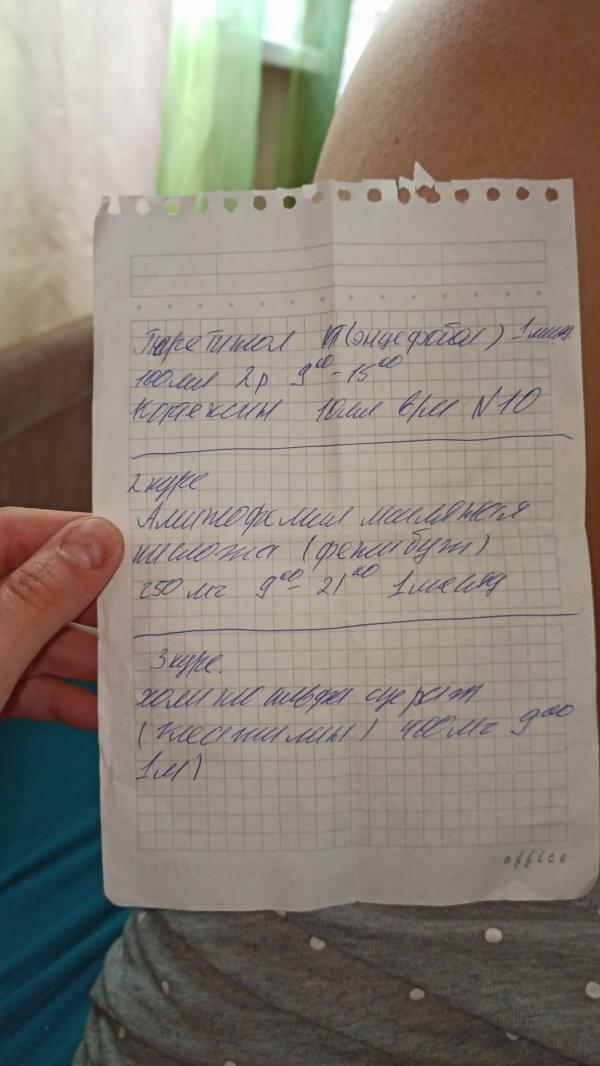 Пиретинол (энцефабол) 1 мес
100мл 2р 9⁰⁰-15⁰⁰
Кортексин 10мл в/м N10
2 курс
Аминофенил масляная
кислота (фенибут)
250 мг 9⁰⁰-21⁰⁰ 1 месяц
3 курс.
холина альфа
400 мг 9⁰⁰
1м)
office